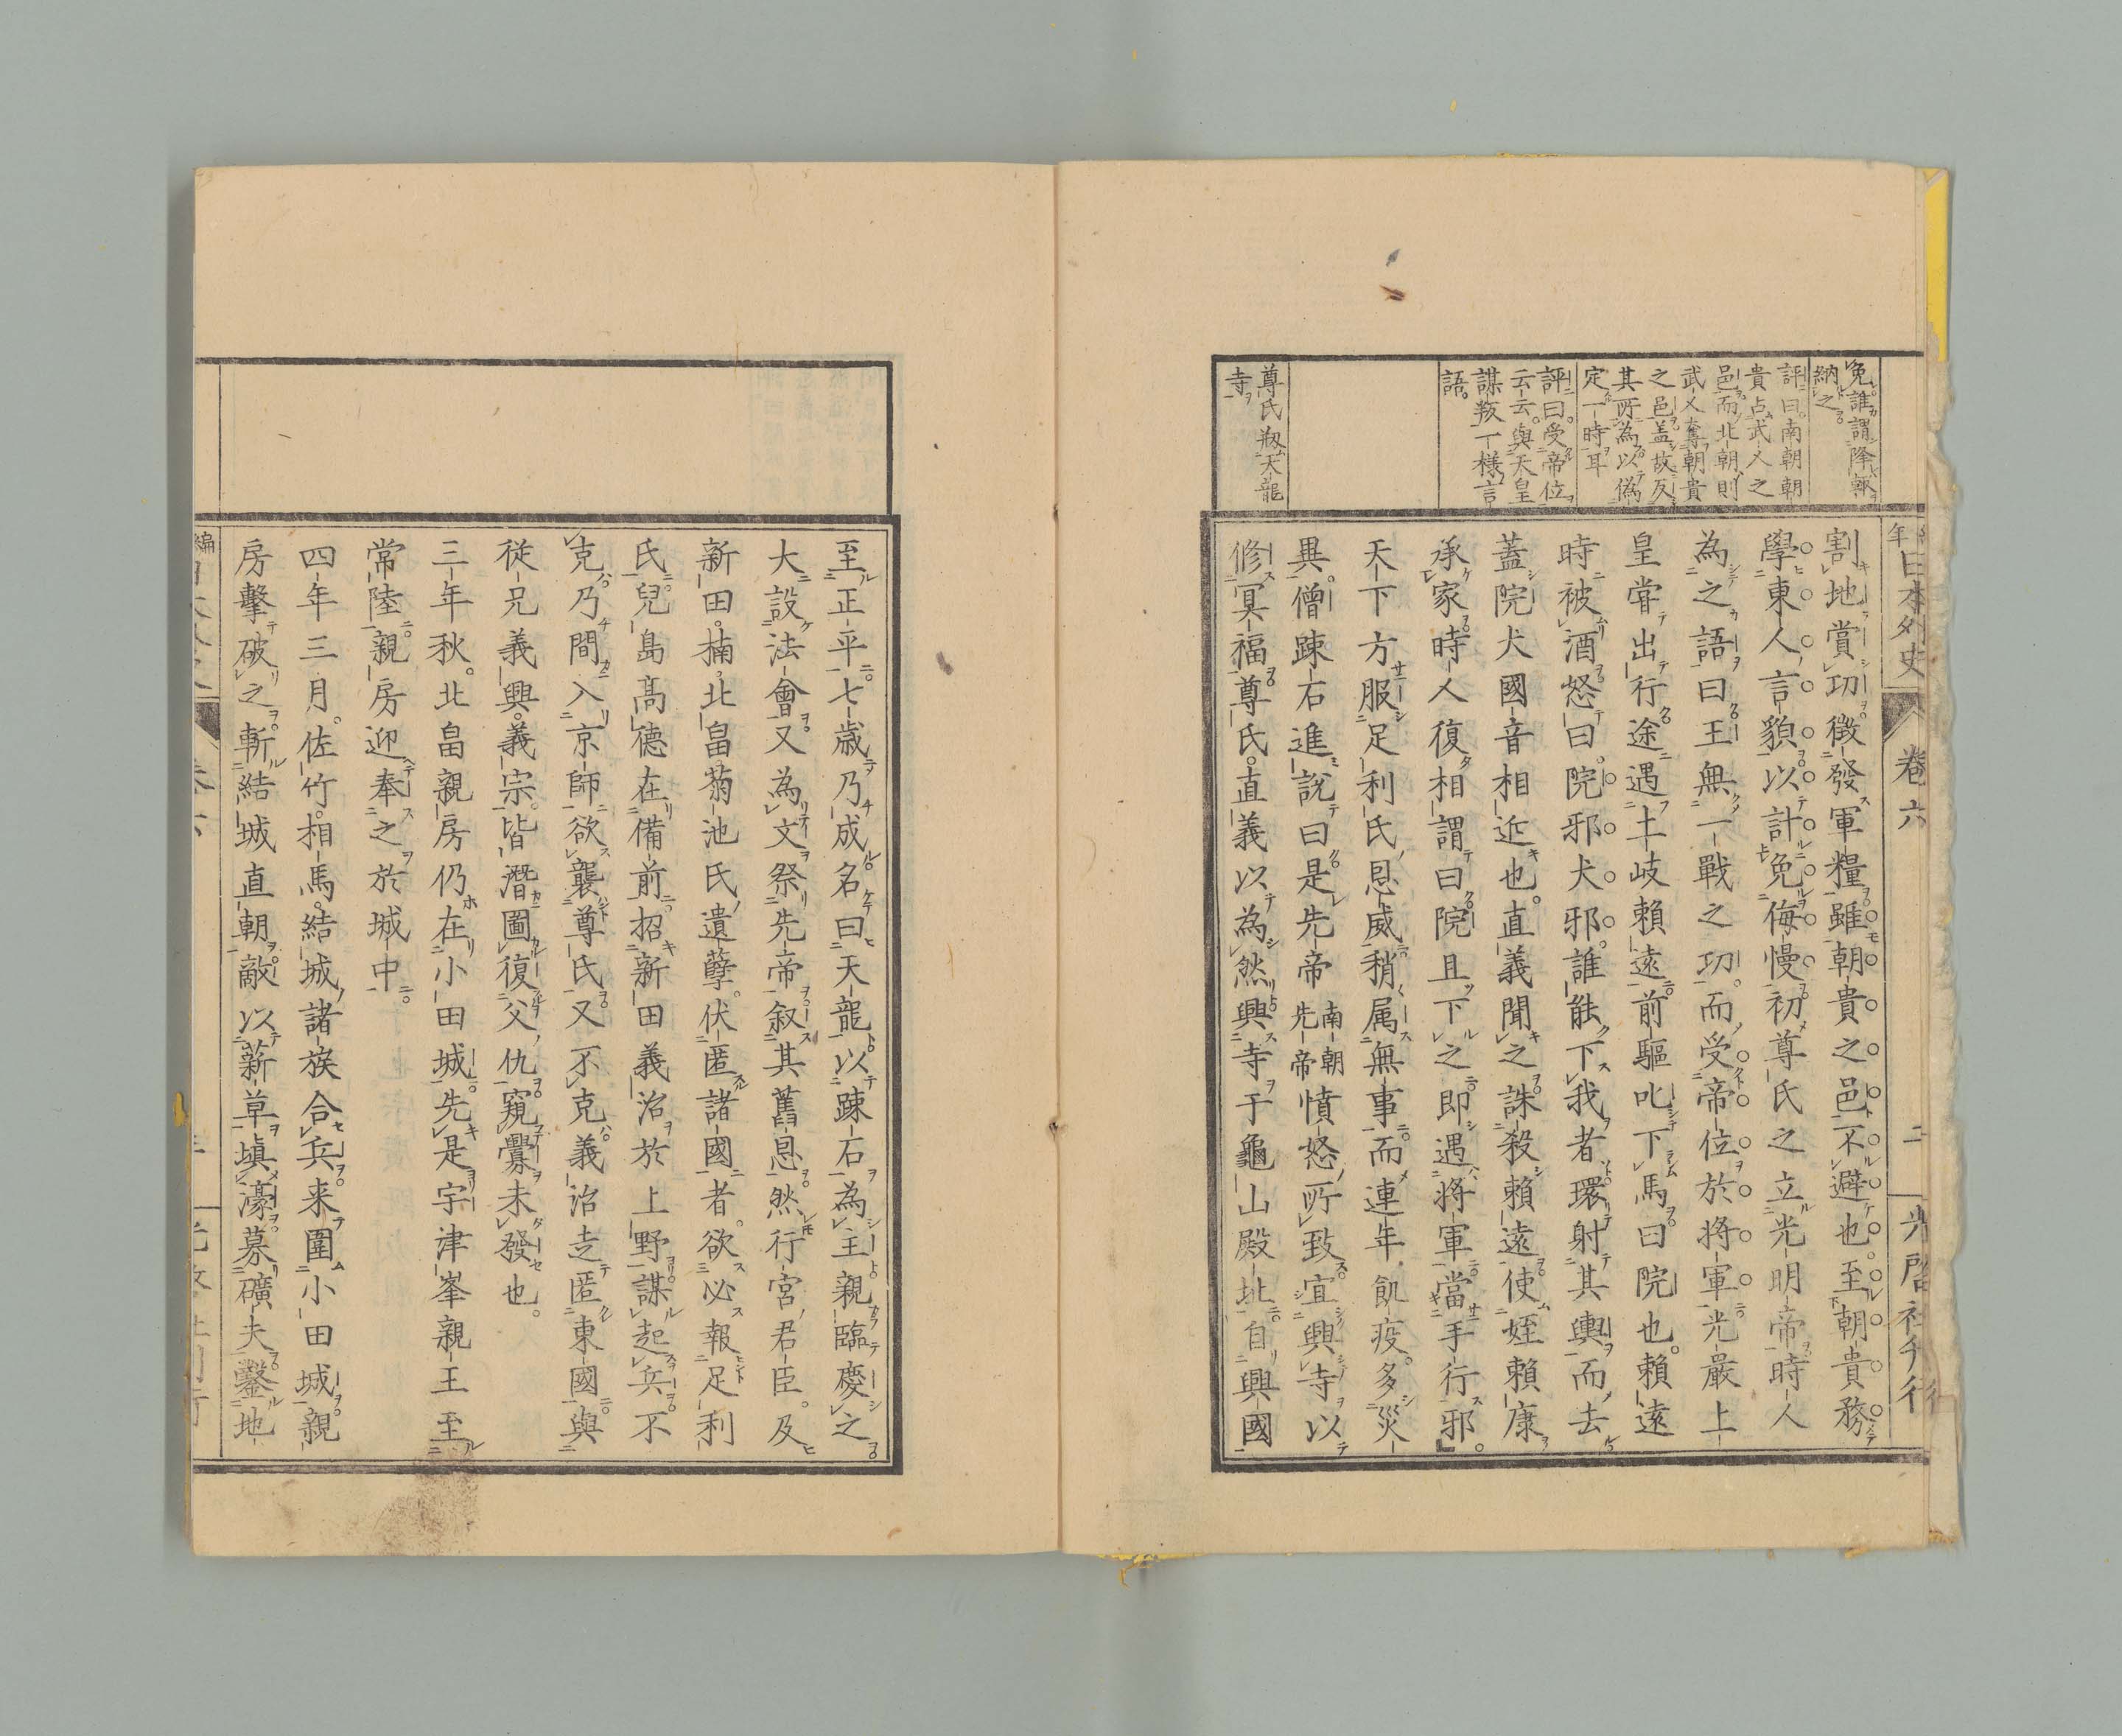 年日本外史
卷六
二
光啓社刊行
免誰謂降
納之
評曰南朝朝
貴占武人之
邑而北朝則
武人奪朝貴
之邑蓋故反
其所為以偽
定一時耳
評曰受帝位
云云與天皇
謀叛一樣言
語
尊氏剏天龍
寺
割地賞功徵發軍糧雖朝貴之邑不避也至朝貴務
學東人言貌以計免侮慢初尊氏之立光明帝時人
為之語曰王無一戰之功而受帝位於將軍光嚴上
皇甞出行途遇土岐賴遠前驅叱下馬曰院也賴遠
時被酒怒曰院邪犬邪誰能下我者環射其輿而去
蓋院犬國音相近也直義聞之誅殺賴遠使姪賴康
承家時人復相謂曰院且下之即遇將軍當手行邪
天下方服足利氏恩威稍属無事而連年飢疫多災
異僧踈石進說曰是先帝南朝先帝憤怒所致宜興寺以
修冥福尊氏直義以為然興寺于龜山殿址自興國
至正平七歲乃成名曰天龍以踈石為主親臨慶之
大設法會又為文祭先帝叙其舊恩然行宮君臣及
新田楠北畠菊池氏遺孽伏匿諸國者欲必報足利
氏兒島高德在備前招新田義治於上野謀起兵不
克乃間入京師欲襲尊氏又不克義治走匿東國與
從兄義興義宗皆潛圖復父仇窺釁未發也
三年秋北畠親房仍在小田城先是宇津峯親王至
常陸親房迎奉之於城中
四年三月佐竹相馬結城諸族合兵来圍小田城親
房擊破之斬結城直朝敵以薪草塡濠募礦夫鑿地
編